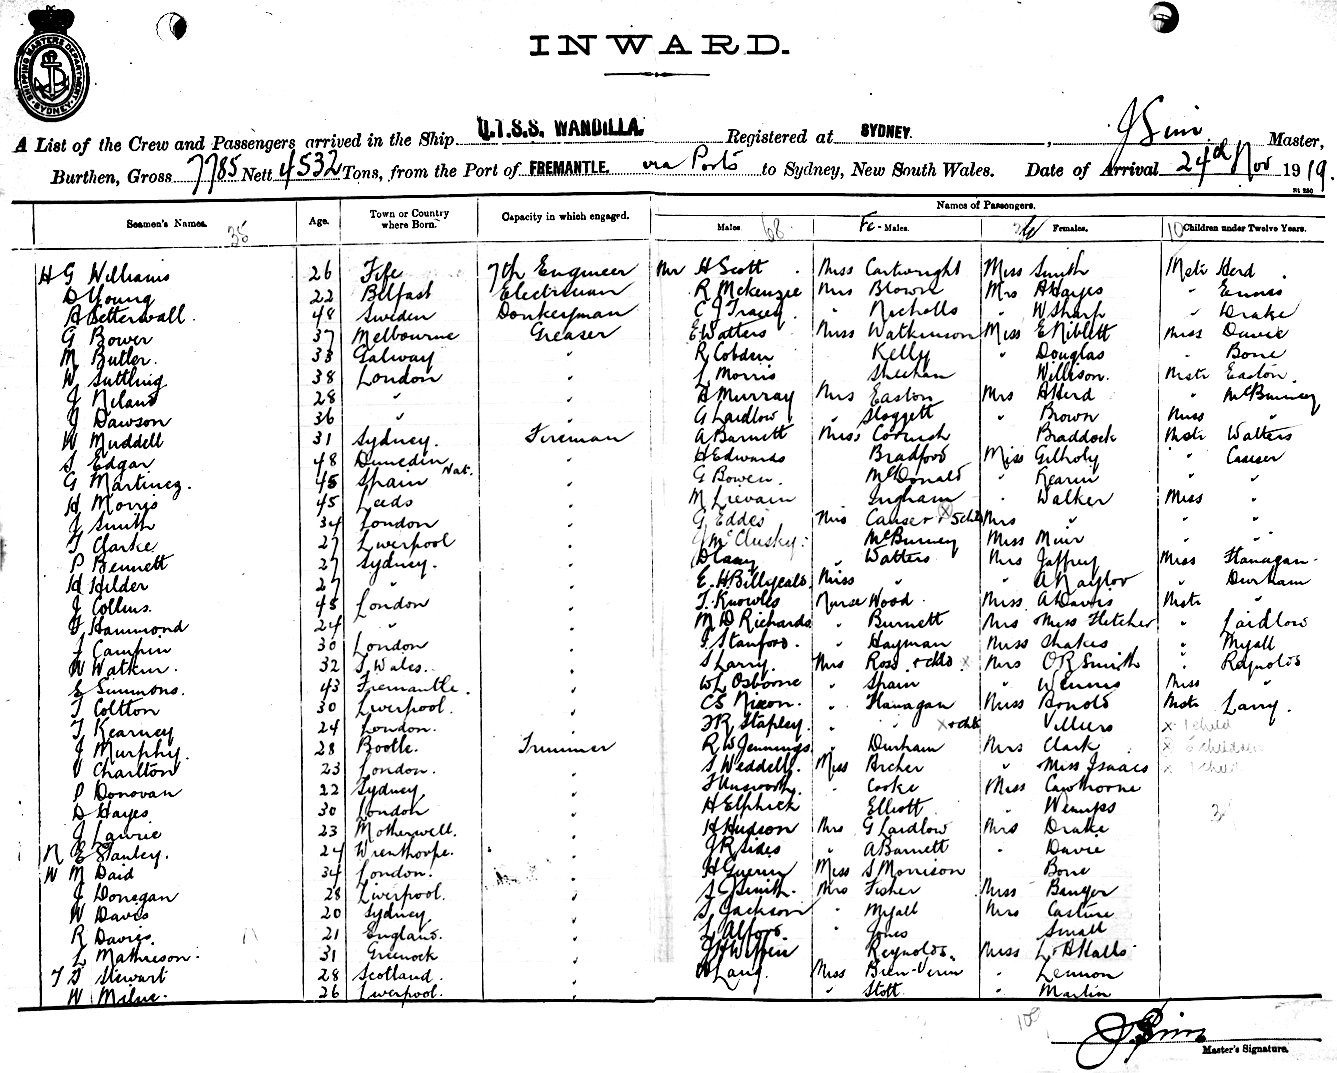 SHIPPING MASTERS DEPARTMENT SYDNEY
INWARD.
A List of the Crew and Passengers arrived in the Ship Q.T.S.S. WANDILLA. Registered at SYDNEY. , J Sim Master,
Burthen, Gross 7785 Nett 4532 Tons, from the Port of FREMANTLE. via Ports to Sydney, New South Wales. Date of Arrival 24th Nov 1919.
Names of Passengers.
Seamen's Names. Age. Town or Country where Born. Capacity in which engaged. Males 68 Fe-Males. Females. 10 Children under Twelve Years.
H G Williams 26 Fife 7th Engineer Mr H Scott Miss Cartwright Miss Smith Mstr Herd
D Young 22 Belfast Electrician R McKenzie Mrs Blown Mrs A Hayes " Ennis
A Betterwall 48 Sweden Donkeyman C J Tracey " Nicholls " W Sharp " Drake
G Bower 37 Melbourne Greaser E Watters Miss Watkinson Miss E Niblett Miss Davie
M Butler 33 Galway " R Cobden Kelly " Douglas " Bone
W Suttling 38 London " L Morris Sheehan Willison. Mstr Easton
J Niland 28 " " A Murray Mrs Easton Mrs A Herd " McBurney
J Dawson 36 " " G Laidlow " Sloggett " Brown Miss "
W Muddell 31 Sydney. Fireman A Barnett Miss Cornish Braddock Mstr Watters
S Edgar 48 Dunedin " H Edwards Bradford Miss Gilholy " Causer
G Martinez. 45 Spain Nat. " G Bowen. McDonald " Kearin " "
H Morris 45 Leeds " M Lievain Ingham " Walker Miss "
J Smith 34 London " G Eddes Mrs Causer + 5 chld Mrs " " "
T Clarke 27 Liverpool " J McClusky. McBurney Miss Muir " "
P Bennett 27 Sydney. " D Lamy " Watters Mrs Jaffrey Miss Flanagan.
H Hilder 27 " " E. H Billyeald Miss " " A Naylor " Durham
J Collins. 48 London " T. Knowles Nurse Wood Miss A Davis Mstr "
Hammond 24 " " M D Richards " Burnett Mrs Miss Fletcher " Laidlow
J Campin 30 London " F. Stanford. " Hayman Miss Shakes " Myall
W Watkin. 32 S. Wales. " S Larry. Mrs Ross + chld x Mrs O R Smith " Reynolds
E Simmons. 43 Fremantle. " W L Osborne " Spain " Wennis Miss "
T Coltton 30 Liverpool. " C S Nixon. " Flanagan Miss Arnold Mstr Larry.
T Kearney 24 London. " F R Stapley " " x + chld " Villiers x 1 child
J Murphy 28 Bootle. Trimmer R W Jennings " Durham Mrs Clark x 5 children
V Charlton 23 London. " S Weddell. Miss Archer " Miss Isaacs x 1 child
P Donovan 22 Sydney " F Unsworth. " Cooke Miss Cawthorne
D Hayes 30 London " H Elphick Elliott " Wemyss
J Lawrie 23 Motherwell. " H Hudson Mrs G Laidlow Mrs Drake
N E Stanley. 24 Wrenthorpe. " J R Sides " A Barnett " Davie
W M Daid 34 London. " H Guerin Miss S Morrison Bone
J Donegan 28 Liverpool. " S J Smith. Mrs Fisher Miss Banger
W Davis 20 Sydney " S Jackson " Myall Mrs Castine
R Davies. 21 England. " L Alford " Jones Small
L Mathieson. 31 Greenock " Reynolds. Miss L A Halls
T D Stewart 28 Scotland. " A Lang. Miss " Lennon
W Milne. 26 Liverpool. " " Stott " Martin
J Sim
Master's Signature.